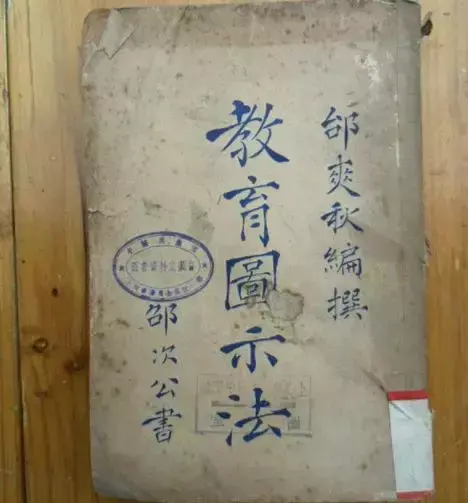 邰爽秋編撰
教育圖示法
邵次公書